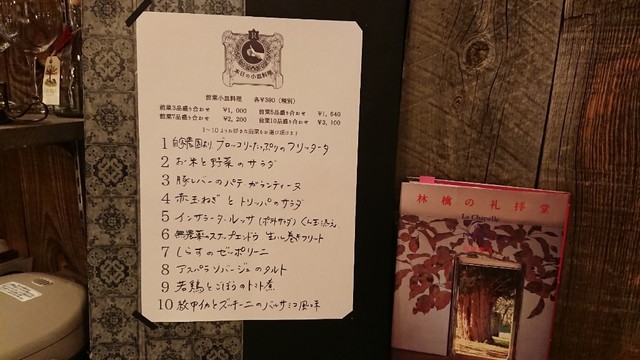 本日の小皿料理
前菜小皿料理 各¥390(税別)
前菜3品盛り合わせ ¥1,000 前菜5品盛り合わせ ¥1,640
前菜7品盛り合わせ ¥2,200 前菜10品盛り合わせ ¥3,100
1 自家農園より ブロッコリーたっぷりのフリッタータ
2 お米と野菜のサラダ
3 豚レバーのパテ ガランティーヌ
4 赤玉ねぎとトリッパのサラダ
5 インサラータ・ルッサ(ポテサラダ)くん玉添え
6 無農薬のスナップエンドウ 生ハム巻きフリート
7 しらすのゼッポリーニ
8 アスパラソバージュのタルト
9 若鶏とごぼうのトマト煮
10 紋甲イカとズッキーニのバルサミコ風味
林檎の礼拝堂
La Chapelle